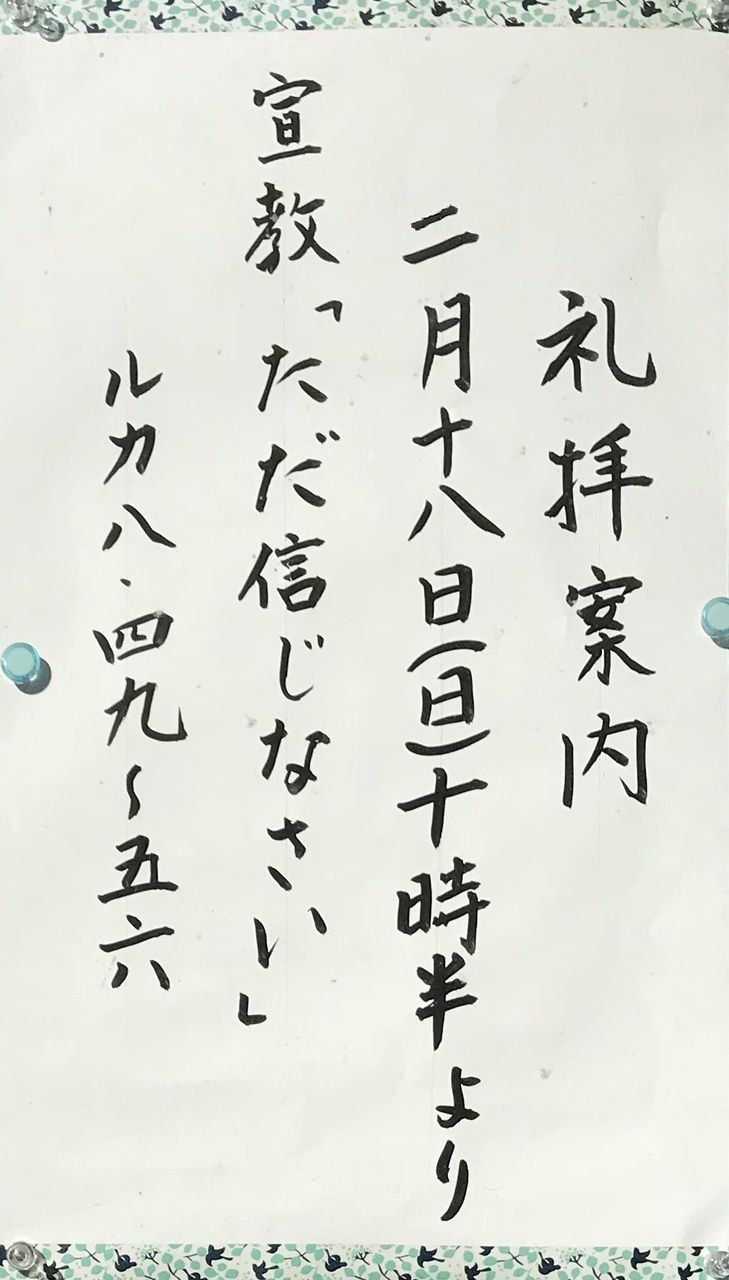 礼拝案内
二月十八日(日)十時半より
宣教「ただ信じなさい」
ルカ八・四九〜五六